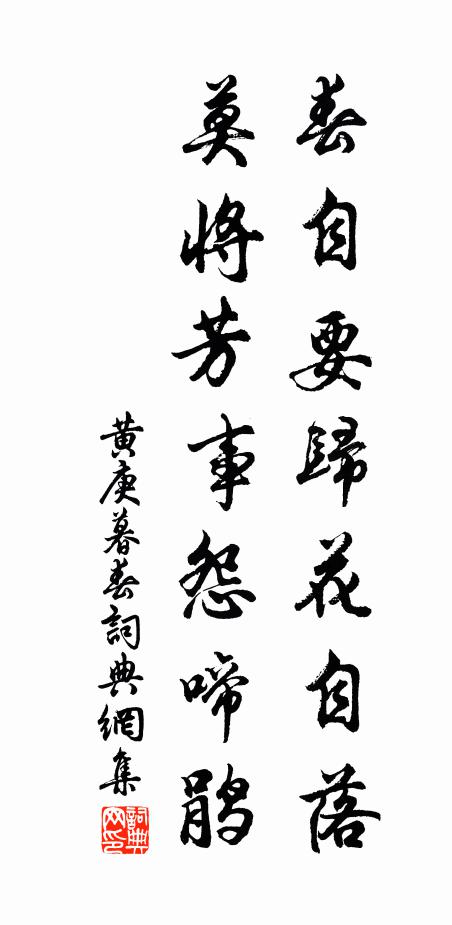 春自要歸花自落
莫將芳事怨啼鵑
黄庚暮春詞典網集
詞典网印